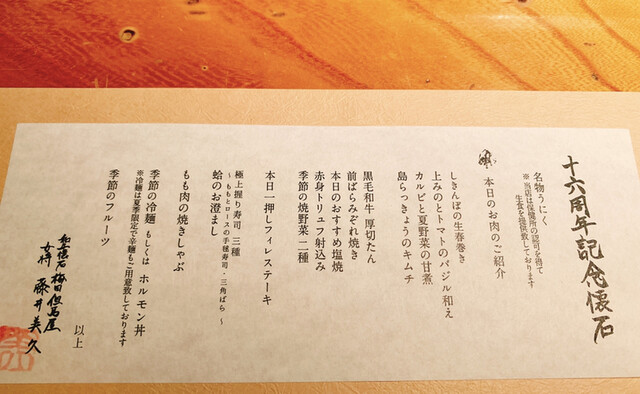 十六周年記念懐石
名物うにく
※当店は保健所の認可を得て
生食を提供致しております
本日のお肉のご紹介
しきんぼの生春巻き
上みのとトマトのバジル和え
カルビと夏野菜の甘煮
島らっきょうのキムチ
黒毛和牛 厚切たん
前ばらみぞれ焼き
本日のおすすめ塩焼
赤身トリュフ射込み
季節の焼野菜 二種
本日一押しフィレステーキ
極上握り寿司 三種
～ももとロースの手毬寿司・三角ばら～
蛤のお澄まし
もも肉の焼きしゃぶ
季節の冷麺 もしくは ホルモン丼
※冷麺は夏季限定で辛麺もご用意致しております
季節のフルーツ
以上
懐石 梅田 但馬屋
女将 藤井美久